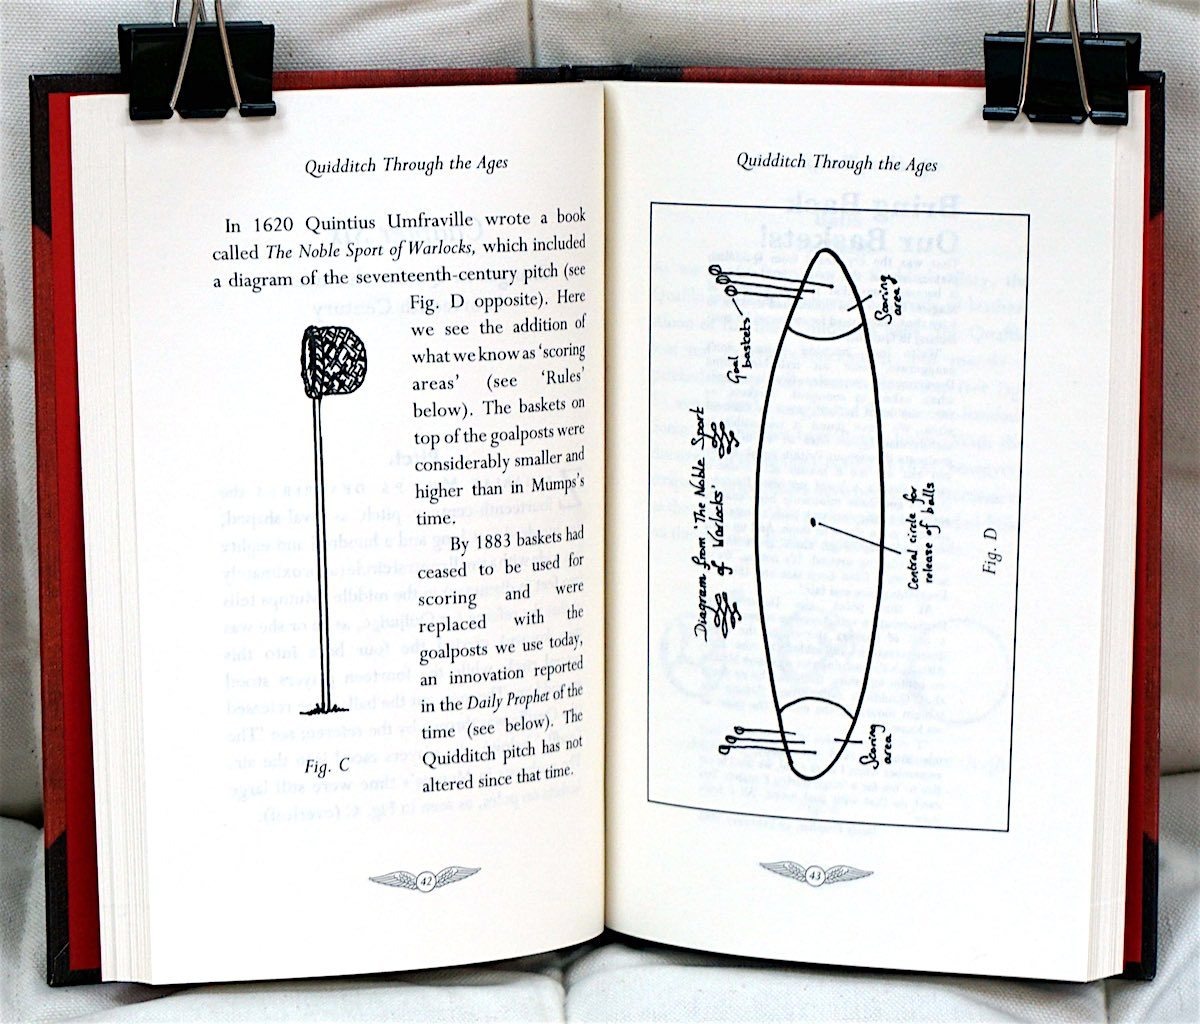 Quidditch Through the Ages
In 1620 Quintius Umfraville wrote a book
called The Noble Sport of Warlocks, which included
a diagram of the seventeenth-century pitch (see
Fig. D opposite). Here
we see the addition of
what we know as ‘scoring
areas’ (see ‘Rules’
below). The baskets on
top of the goalposts were
considerably smaller and
higher than in Mumps’s
time.
By 1883 baskets had
ceased to be used for
scoring and were
replaced with the
goalposts we use today,
an innovation reported
in the Daily Prophet of the
time (see below). The
Quidditch pitch has not
altered since that time.
Fig. C
42
Quidditch Through the Ages
Diagram from ‘The Noble Sport
of Warlocks’
Goal
baskets
Scoring
area
Central circle for
release of balls
Scoring
area
Fig. D
43